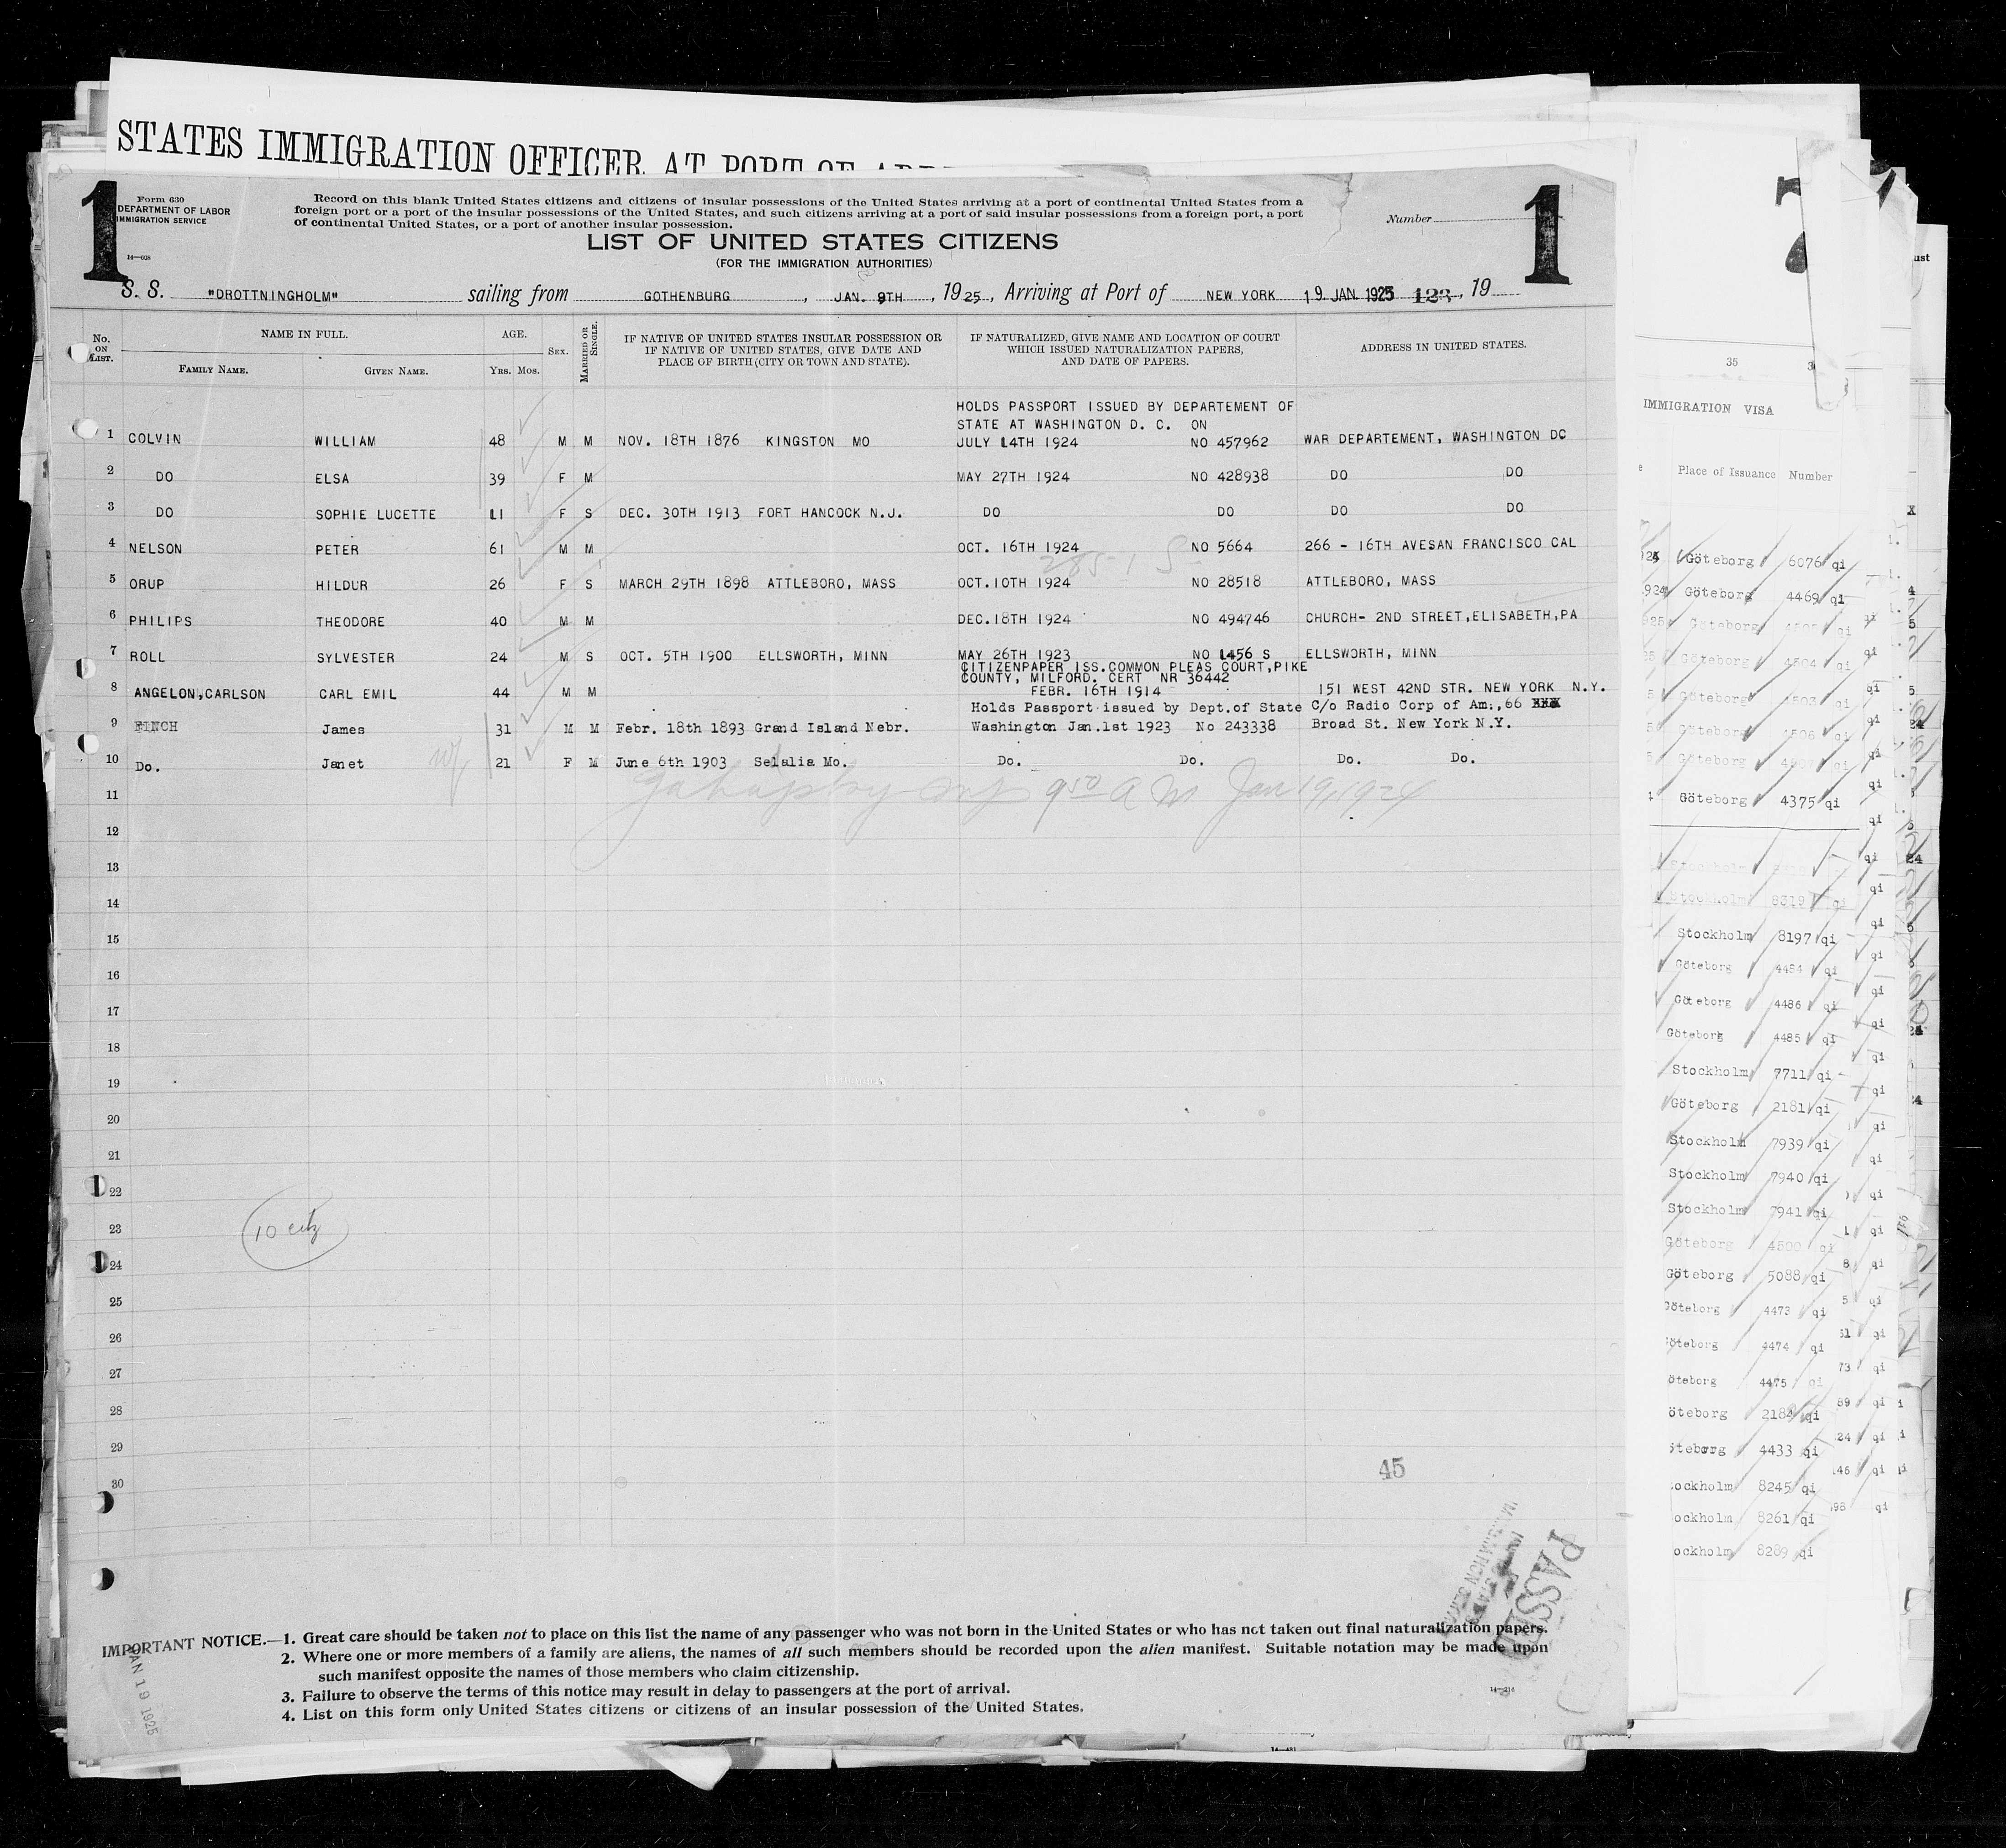 STATES IMMIGRATION OFFICER AT PORT OF
1
Form 630
DEPARTMENT OF LABOR
IMMIGRATION SERVICE
14—608
Record on this blank United States citizens and citizens of insular possessions of the United States arriving at a port of continental United States from a
foreign port or a port of the insular possessions of the United States, and such citizens arriving at a port of said insular possessions from a foreign port, a port
of continental United States, or a port of another insular possession.
Number
1
LIST OF UNITED STATES CITIZENS
(FOR THE IMMIGRATION AUTHORITIES)
S. S. "DROTTNINGHOLM" sailing from GOTHENBURG, JAN. 9TH, 1925, Arriving at Port of NEW YORK 19 JAN. 1925 123, 19
No. ON LIST. NAME IN FULL. AGE. SEX. MARRIED OR SINGLE. IF NATIVE OF UNITED STATES INSULAR POSSESSION OR IF NATIVE OF UNITED STATES, GIVE DATE AND PLACE OF BIRTH (CITY OR TOWN AND STATE). IF NATURALIZED, GIVE NAME AND LOCATION OF COURT WHICH ISSUED NATURALIZATION PAPERS, AND DATE OF PAPERS. ADDRESS IN UNITED STATES.
FAMILY NAME. GIVEN NAME. Yrs. Mos.
HOLDS PASSPORT ISSUED BY DEPARTEMENT OF
STATE AT WASHINGTON D. C. ON
1 COLVIN WILLIAM 48 M M NOV. 18TH 1876 KINGSTON MO JULY 14TH 1924 NO 457962 WAR DEPARTEMENT, WASHINGTON DC
2 DO ELSA 39 F M MAY 27TH 1924 NO 428938 DO DO
3 DO SOPHIE LUCETTE 11 F S DEC. 30TH 1913 FORT HANCOCK N.J. DO DO DO DO
4 NELSON PETER 61 M M OCT. 16TH 1924 NO 5664 266 - 16TH AVESAN FRANCISCO CAL
5 ORUP HILDUR 26 F S MARCH 29TH 1898 ATTLEBORO, MASS OCT.10TH 1924 NO 28518 ATTLEBORO, MASS
6 PHILIPS THEODORE 40 M M DEC.18TH 1924 NO 494746 CHURCH- 2ND STREET,ELISABETH,PA
7 ROLL SYLVESTER 24 M S OCT. 5TH 1900 ELLSWORTH, MINN MAY 26TH 1923 NO 1456 S ELLSWORTH, MINN
CITIZENPAPER ISS.COMMON PLEAS COURT,PIKE
COUNTY, MILFORD. CERT NR 36442
8 ANGELON,CARLSON CARL EMIL 44 M M FEBR. 16TH 1914 151 WEST 42ND STR. NEW YORK N.Y.
Holds Passport issued by Dept.of State C/o Radio Corp of Am:,66 XXX
9 FINCH James 31 M M Febr. 18th 1893 Grand Island Nebr. Washington Jan.1st 1923 No 243338 Broad St. New York N.Y.
10 Do. Janet 21 F M June 6th 1903 Selalia Mo. Do. Do. Do. Do.
9 50 A M Jan 19, 1924
11
12
13
14
15
16
17
18
19
20
21
22
23
10 citz
24
25
26
27
28
29
45
30
PASSED
IMPORTANT NOTICE.—1. Great care should be taken not to place on this list the name of any passenger who was not born in the United States or who has not taken out final naturalization papers.
2. Where one or more members of a family are aliens, the names of all such members should be recorded upon the alien manifest. Suitable notation may be made upon
such manifest opposite the names of those members who claim citizenship.
3. Failure to observe the terms of this notice may result in delay to passengers at the port of arrival.
4. List on this form only United States citizens or citizens of an insular possession of the United States.
14—216
JAN 19 1925
35
IMMIGRATION VISA
Place of Issuance Number
Göteborg 6076 qi
Göteborg 4469 qi
Göteborg qi
Göteborg 4504 qi
Göteborg 4503 qi
Göteborg 4506 qi
Göteborg qi
Göteborg 4375 qi
Stockholm
Stockholm 8319 qi
Stockholm 8197 qi
Göteborg 4484 qi
Göteborg 4486 qi
Göteborg 4485 qi
Stockholm 7711 qi
Göteborg 2181 qi
Stockholm 7939 qi
Stockholm 7940 qi
Stockholm 7941 qi
Göteborg 4500 qi
Göteborg 5088 qi
Göteborg 4473 qi
öteborg 4474 qi
öteborg 4475 qi
öteborg qi
öteborg 4433 qi
ockholm 8245 qi
ockholm 8261 qi
ockholm 8289 qi